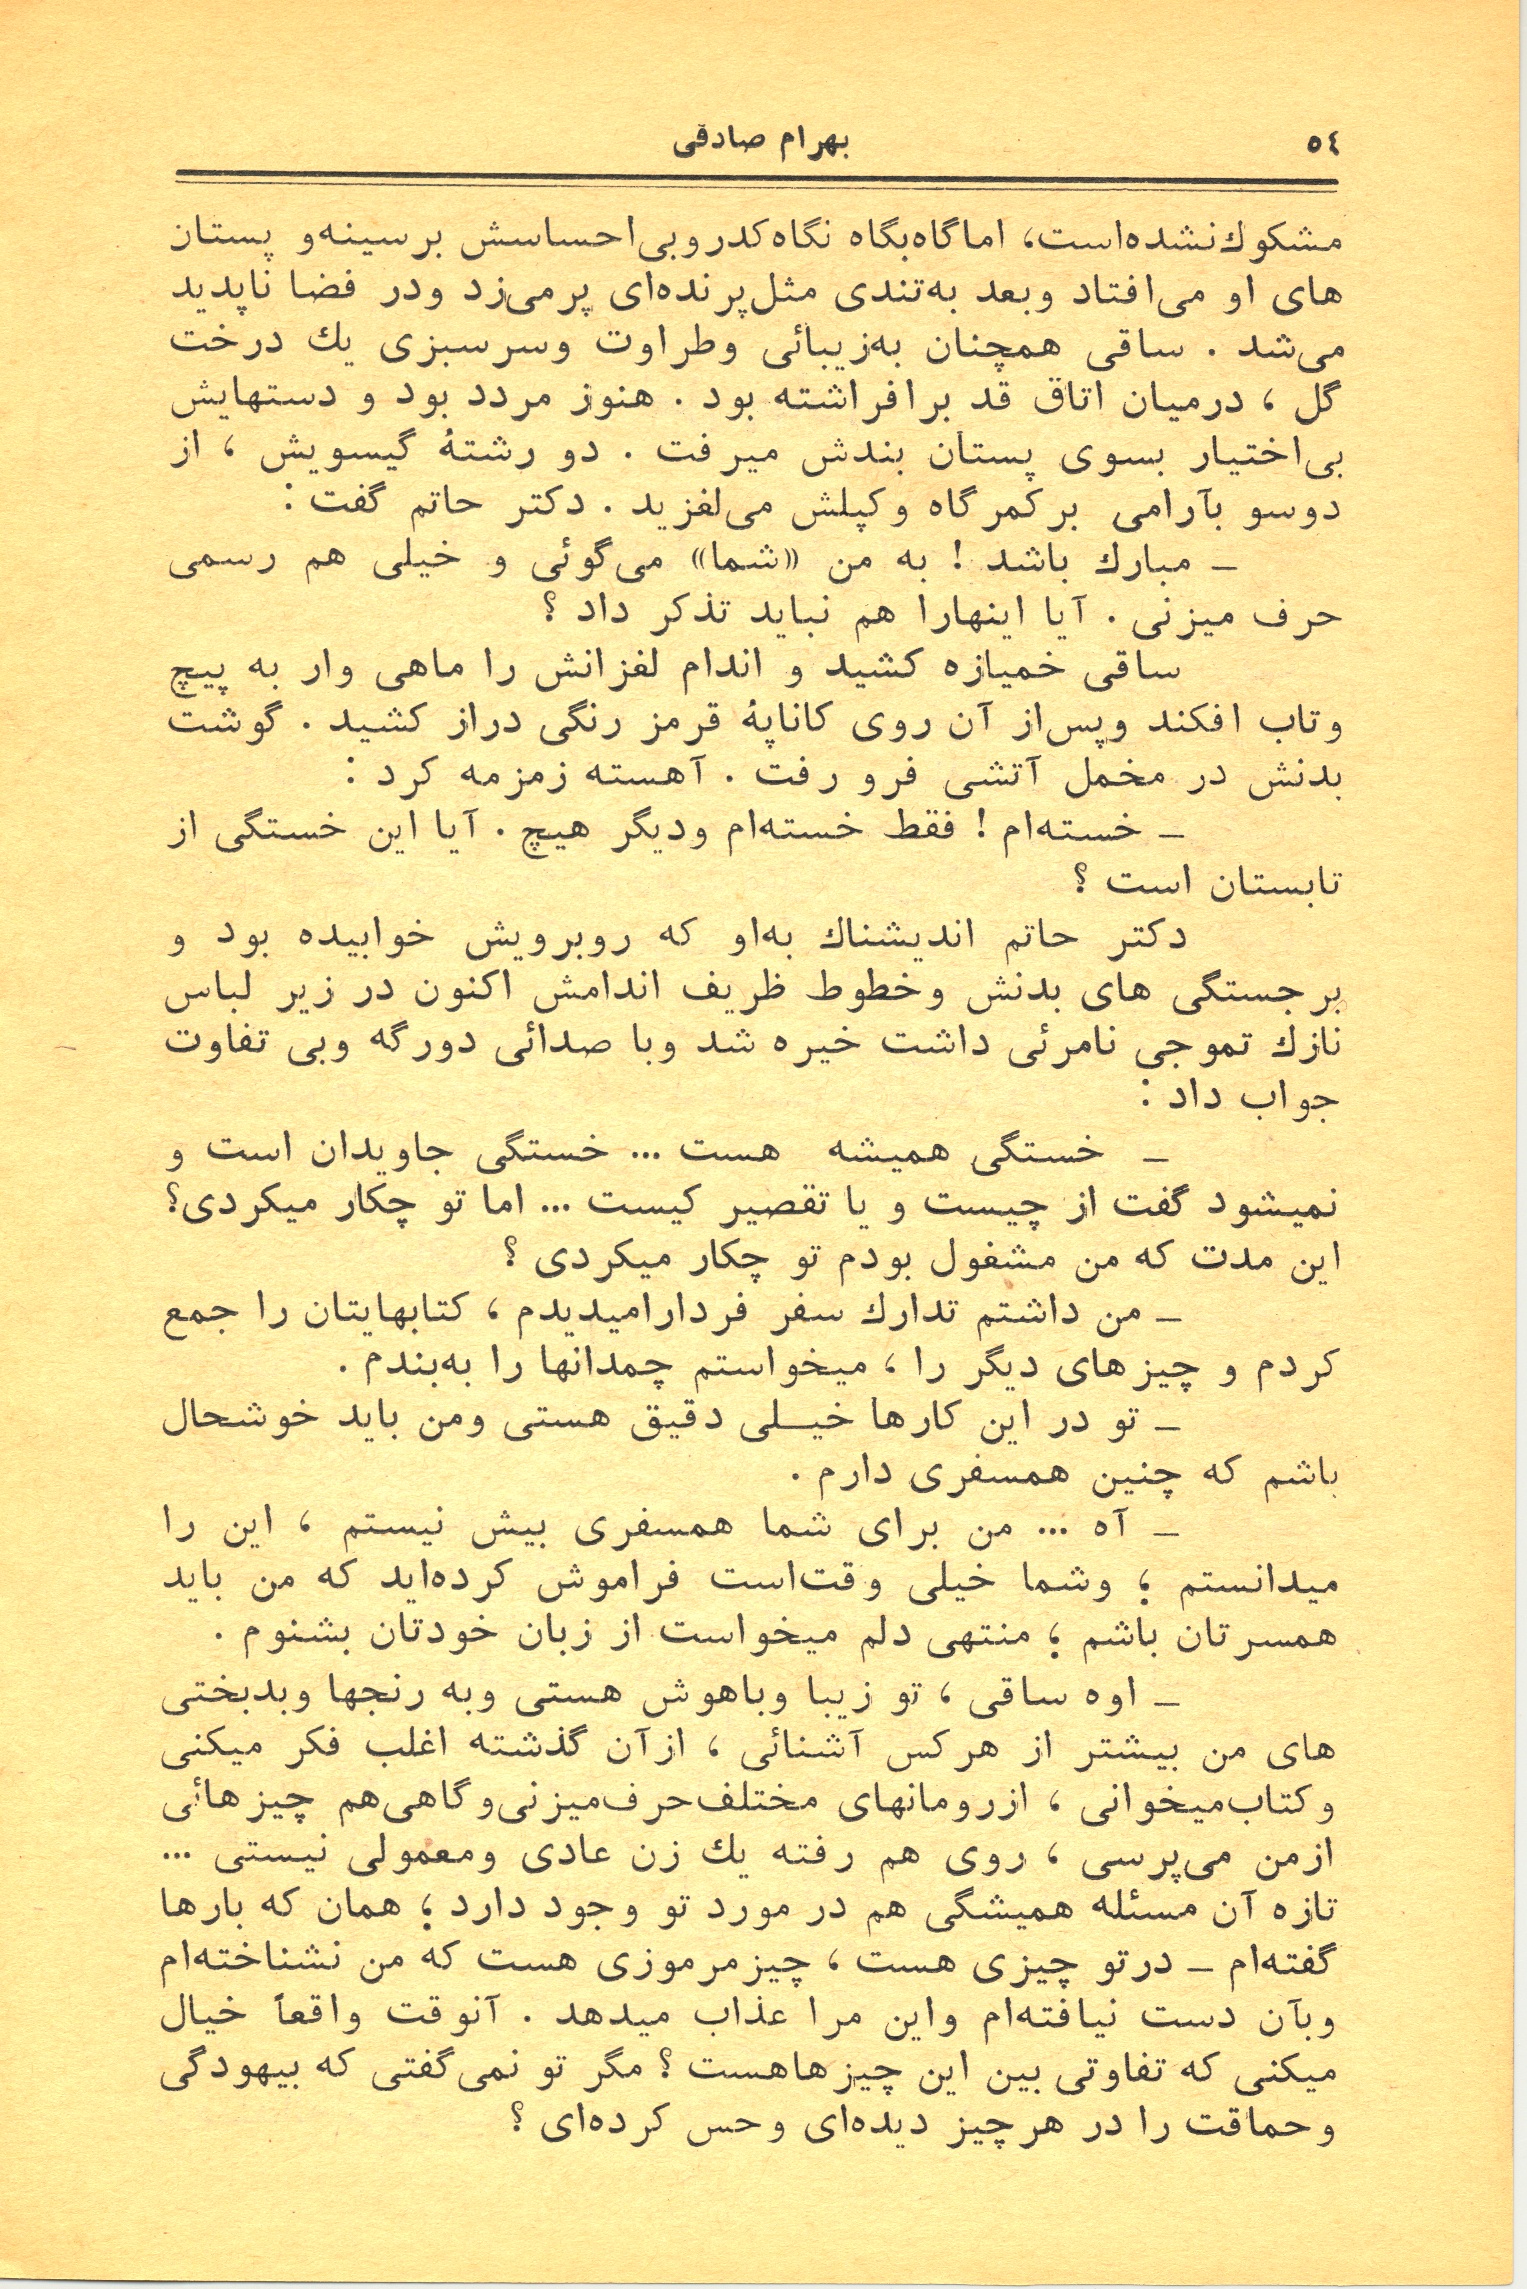 ٥٤
بهرام صادقی
مشکوك نشده‌است، اما گاه‌بگاه نگاه کدر و بی‌احساسش بر سینه‌و پستان
های او می‌افتاد و بعد به‌تندی مثل پرنده‌ای پر می‌زد و در فضا ناپدید
می‌شد . ساقی همچنان به‌زیبائی و طراوت و سرسبزی یك درخت
گل ، درمیان اتاق قد برافراشته بود . هنوز مردد بود و دستهایش
بی‌اختیار بسوی پستان بندش میرفت . دو رشتهٔ گیسویش ، از
دوسو بآرامی بر کمر گاه و کپلش می‌لغزید . دکتر حاتم گفت :
ـ مبارك باشد ! به من «شما» می‌گوئی و خیلی هم رسمی
حرف میزنی . آیا اینهارا هم نباید تذکر داد ؟
ساقی خمیازه کشید و اندام لغزانش را ماهی وار به پیچ
و تاب افکند و پس‌از آن روی کاناپهٔ قرمز رنگی دراز کشید . گوشت
بدنش در مخمل آتشی فرو رفت . آهسته زمزمه کرد :
ـ خسته‌ام ! فقط خسته‌ام و دیگر هیچ . آیا این خستگی از
تابستان است ؟
دکتر حاتم اندیشناك به‌او که روبرویش خوابیده بود و
برجستگی های بدنش و خطوط ظریف اندامش اکنون در زیر لباس
نازك تموجی نامرئی داشت خیره شد و با صدائی دورگه و بی تفاوت
جواب داد :
ـ خستگی همیشه هست ... خستگی جاویدان است و
نمیشود گفت از چیست و یا تقصیر کیست ... اما تو چکار میکردی؟
این مدت که من مشغول بودم تو چکار میکردی ؟
ـ من داشتم تدارك سفر فردارامیدیدم ، کتابهایتان را جمع
کردم و چیزهای دیگر را ، میخواستم چمدانها را به‌بندم .
ـ تو در این کارها خیــلی دقیق هستی و من باید خوشحال
باشم که چنین همسفری دارم .
ـ آه ... من برای شما همسفری بیش نیستم ، این را
میدانستم ؛ و شما خیلی وقت‌است فراموش کرده‌اید که من باید
همسرتان باشم ؛ منتهی دلم میخواست از زبان خودتان بشنوم .
ـ اوه ساقی ، تو زیبا و باهوش هستی و به رنجها و بدبختی
های من بیشتر از هر کس آشنائی ، از آن گذشته اغلب فکر میکنی
و کتاب میخوانی ، از رومانهای مختلف حرف میزنی و گاهی هم چیزهائی
از من می‌پرسی ، روی هم رفته یك زن عادی و معمولی نیستی ...
تازه آن مسئله همیشگی هم در مورد تو وجود دارد ؛ همان که بارها
گفته‌ام ـ در تو چیزی هست ، چیز مرموزی هست که من نشناخته‌ام
و بآن دست نیافته‌ام و این مرا عذاب میدهد . آنوقت واقعاً خیال
میکنی که تفاوتی بین این چیزهاهست ؟ مگر تو نمی‌گفتی که بیهودگی
و حماقت را در هر چیز دیده‌ای و حس کرده‌ای ؟